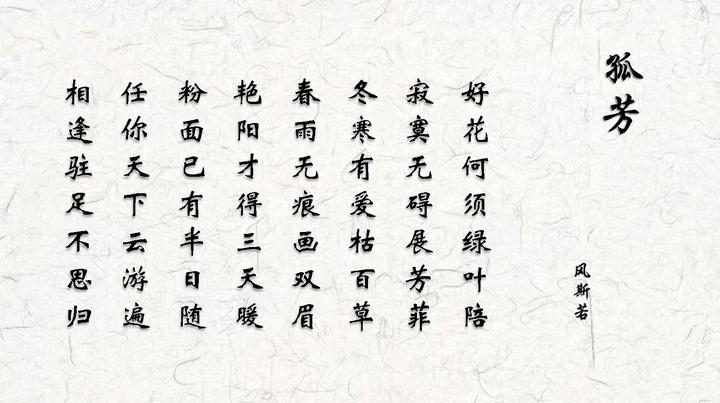 孤芳
风斯若
好花何须绿叶陪
寂寞无碍展芳菲
冬寒有爱枯百草
春雨无痕画双眉
艳阳才得三天暖
粉面已有半日随
任你天下云游遍
相逢驻足不思归